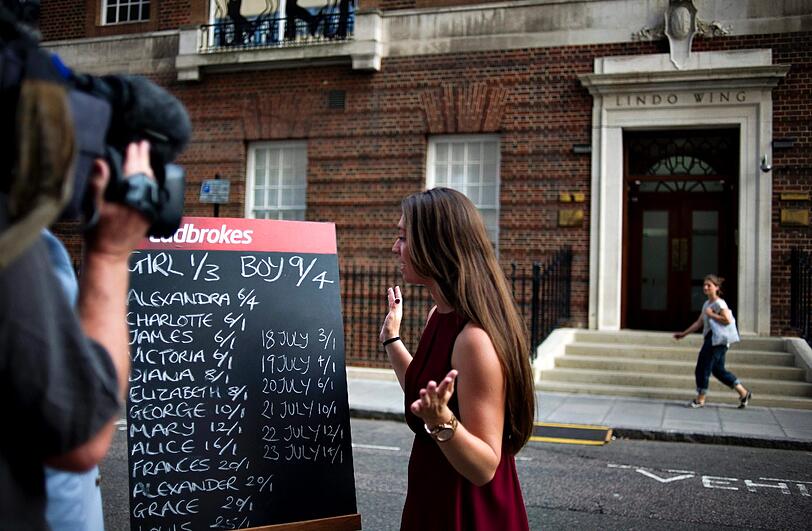 LINDO WING
Ladbrokes
GIRL 1/3 BOY 9/4
ALEXANDRA 6/4
CHARLOTTE 6/1
JAMES 6/1
VICTORIA 6/1
DIANA 8/1
ELIZABETH 8/1
GEORGE 10/1
MARY 12/1
ALICE 16/1
FRANCES 20/1
ALEXANDER 20/1
GRACE 20/1
LOUIS 25/1
18 JULY 3/1
19 JULY 4/1
20 JULY 6/1
21 JULY 10/1
22 JULY 12/1
23 JULY 14/1